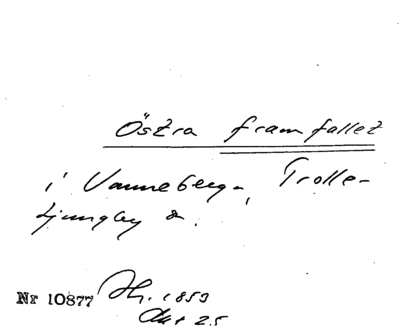 Östra framfallet
i Vanneberga, Trolle-
Ljungby s.
Nr 10877 1859
Okt 25